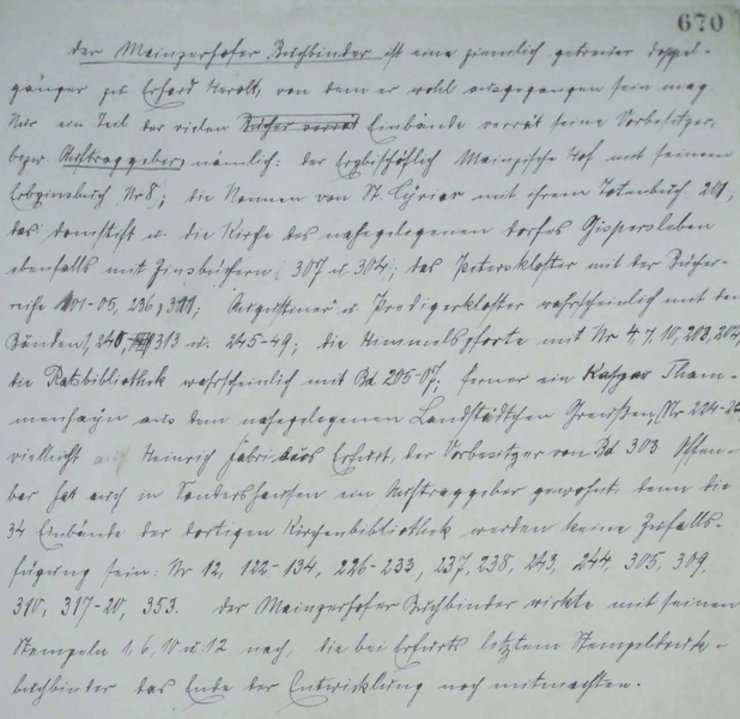 670
Der Mainzerhofer Buchbinder ist eine ziemlich getreuer Doppel-
gänger zu Erhard Herolt, von dem er wohl ausgegangen sein mag.
Nur ein Teil der vielen Bücher verrät Einbände verrät seine Vorbesitzer,
bezw. Auftraggeber, nämlich: der Erzbischöflich Mainzische Hof mit seinem
Erbzinsbuch Nr 8; die Nonnen von St. Cyriax mit ihrem Totenbuch 201;
das Domstift u. die Kirche des nahegelegenen Dorfes Gispersleben
ebenfalls mit Zinsbüchern (307 u. 304); das Peterskloster mit der Bücher-
reihe 101-05, 236, 311; Augustiner u. Predigerkloster wahrscheinlich mit den
Bänden 1, 240, 313 u. 245-49; die Himmelspforte mit Nr 4, 7, 10, 203, 204,
die Ratsbibliothek wahrscheinlich mit Bd 205-07; ferner ein Kaspar Tham-
menhayn aus dem nahegelegenen Landstädtchen Greußen, (Nr 224-
vielleicht auch Heinrich Fabri aus Erfurt, der Vorbesitzer von Bd 303. Offen-
bar hat auch in Sondershausen ein Auftraggeber gewohnt, denn die
34 Einbände der dortigen Kirchenbibliothek werden keine Zufalls-
fügung sein: Nr 12, 122-134, 226-233, 237, 238, 243, 244, 305, 309,
310, 317-20, 353. Der Mainzerhofer Buchbinder wirkte mit seinen
Stempeln 1, 6, 10 u. 12 nach, die bei Erfurts letztem Stempeldruck-
buchbinder das Ende der Entwicklung noch mitmachten.